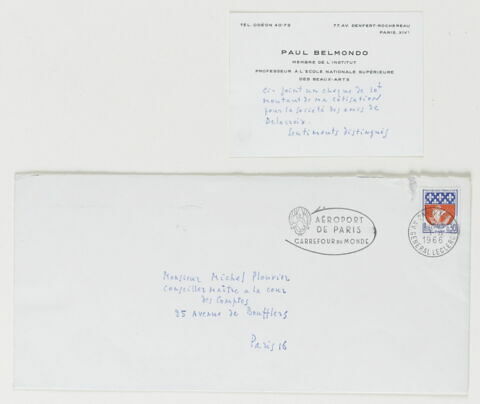 TÉL. ODÉON 40-79
77. AV. DENFERT-ROCHEREAU
PARIS. XIVᵉ
PAUL BELMONDO
MEMBRE DE L'INSTITUT
PROFESSEUR À L'ECOLE NATIONALE SUPÉRIEURE
DES BEAUX-ARTS
ci-joint un cheque de
montant de ma côtisation
pour la société des amis de
Delacroix.
Sentiments distingués
AÉROPORT
DE PARIS
CARREFOUR DU MONDE
1966
GENERAL LECLERC
Monsieur Michel Plouvier
Conseiller maître a la cour
des Comptes
25 Avenue de Boufflers
Paris 16